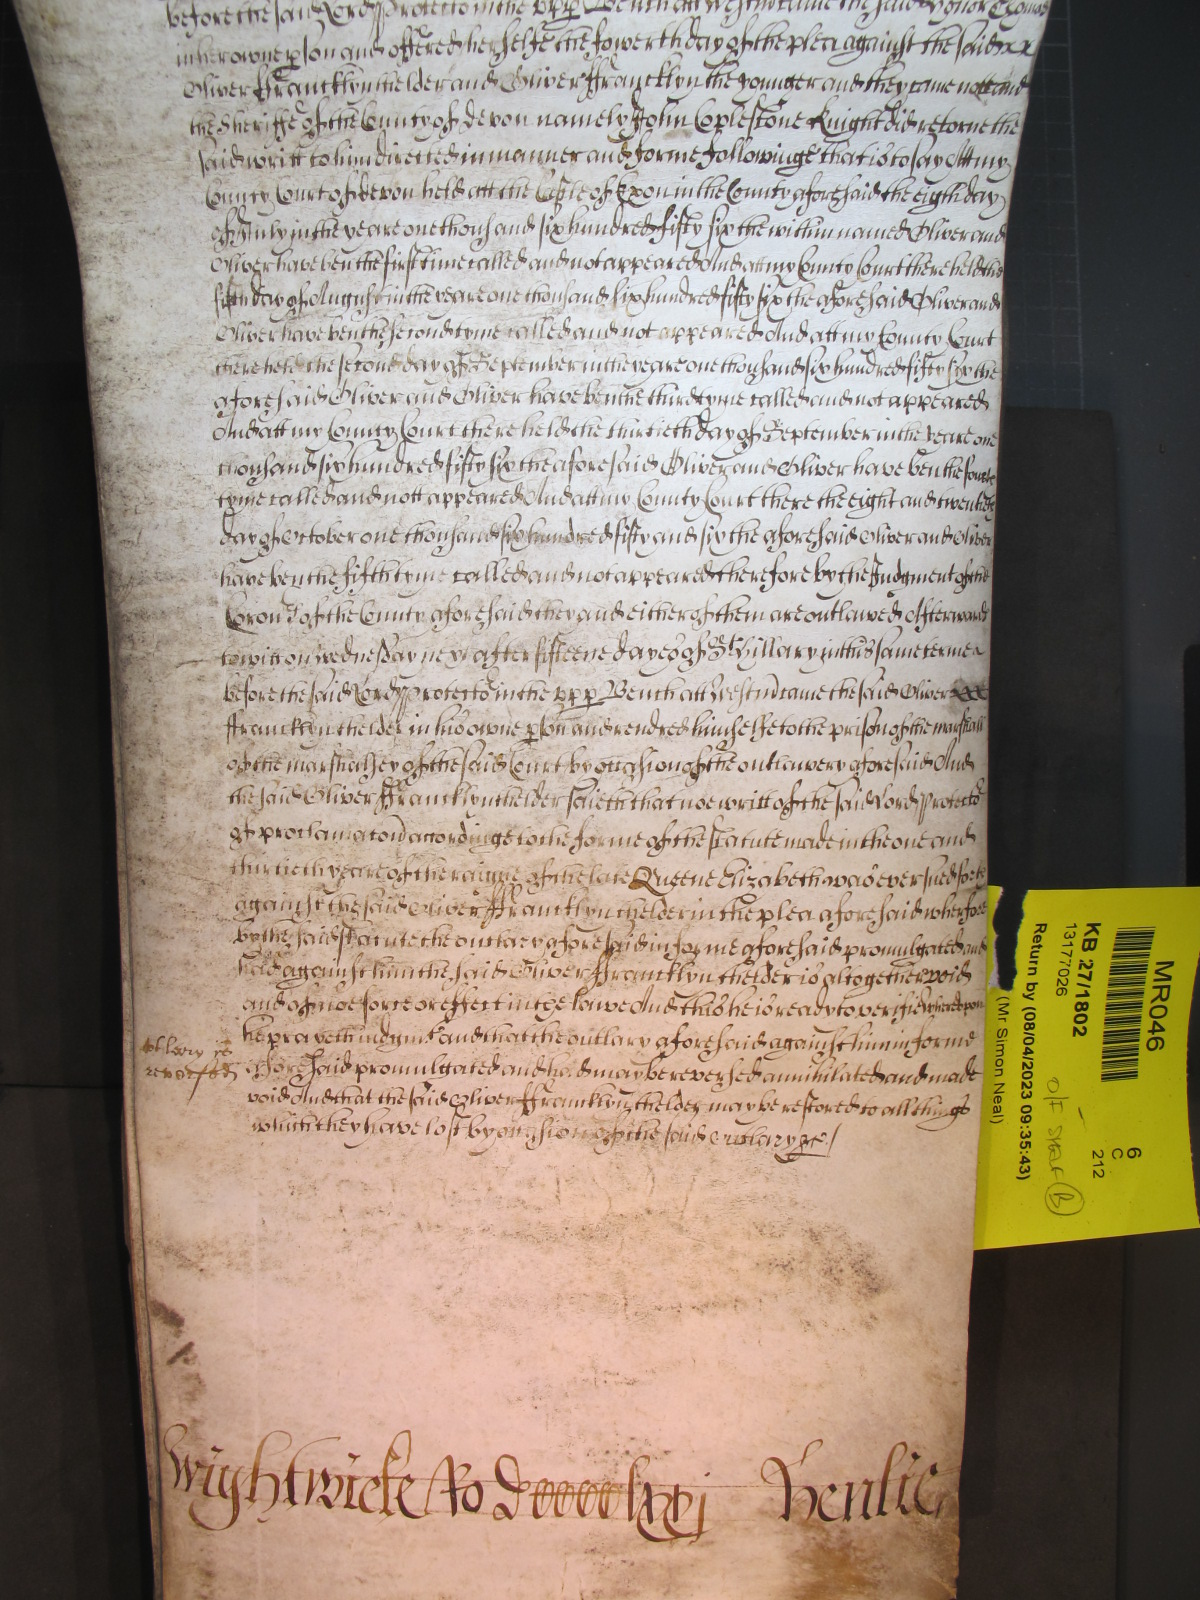 before the said Lord Protector in the upp Bench att Westm came the said Honor Thomas
in her owne pson and offered herselfe the fowerth day of the plea against the said
Oliver Francklyn thelder and Oliver Francklyn the younger and they came not and
the Sheriffe of the County of Devon namely John Coplestone Knight did retorne the
said writt to him directed in manner and forme followinge that is to say Att my
County Court of Devon held att the Castle of Exon in the County aforesaid the eighth day
of July in the yeare one thousand six hundred fifty six the within named Oliver and
Oliver have ben the first time called and not appeared And att my County Court there held the
day of August in the yeare one thousand six hundred fifty six the aforesaid Oliver and
Oliver have ben the second tyme called and not appeared And att my County Court
there held the second day of September in the yeare one thousand six hundred fifty six the
aforesaid Oliver and Oliver have ben the third tyme called and not appeared
And att my County Court there held the thirtieth day of September in the yeare one
thousand six hundred fifty six the aforesaid Oliver and Oliver have ben the fourth
tyme called and nott appeared And att my County Court there the eight and twentieth
day of October one thousand six hundred fifty and six the aforesaid Oliver and Oliver
have ben the fifth tyme called and not appeared therefore by the Judgment of the
Coron of the County aforesaid they and either of them are outlawed Afterwards
to witt on Wednesday next after fifteene dayes of St Hillary in this same terme
before the said Lord Protector in the upp Bench att Westm came the said Oliver
Francklyn thelder in his owne pson and rendred himselfe to the prison of the marshall
of the marshalsey of the said Court by occasion of the outlawery aforesaid And
the said Oliver Francklyn thelder saieth that noe writt of the said Lord Protector
of proclamacon accordinge to the forme of the statute made in the one and
thirtieth yeare of the raigne of the late Queene Elizabeth was ever sued forth
against the said Oliver Francklyn thelder in the plea aforesaid wherfore
by the said statute the outlary aforesaid in forme aforesaid promulgated and
had against him the said Oliver Francklyn thelder is altogether void
and of noe force or effect in the lawe And this he is ready to verifie whereupon
he prayeth Judgmt and that the outlary aforesaid against him in forme
aforesaid promulgated and had may be reversed annihilated and made
void And that the said Oliver Francklyn thelder may be restored to all things
which they have lost by occasion of the said outlary &c
reversed
Wightwicke Ro Dccccclxxj Henlie
MR046
KB 27/1802
13177026
Return by (08/04/2023 09:35:43)
(Mr Simon Neal)
6
C
212
O/S STAFF B